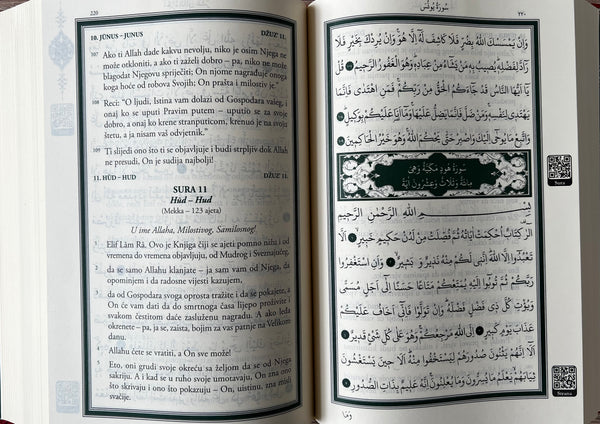 220
10. JŪNUS - JUNUS DŽUZ' 11.
107 Ako ti Allah dade kakvu nevolju, niko je osim Njega ne
može otkloniti, a ako ti zaželi dobro – pa, niko ne može
blagodat Njegovu spriječiti; On njome nagrađuje onoga
koga hoće od robova Svojih; On prašta i milostiv je."
108 Reci: "O ljudi, Istina vam dolazi od Gospodara vašeg, i
onaj ko se uputi Pravim putem – uputio se za svoje
dobro, a onaj ko krene stranputicom, krenuo je na svoju
štetu, a ja nisam vaš odvjetnik."
109 Ti slijedi ono što ti se objavljuje i budi strpljiv dok Allah
ne presudi, On je sudija najbolji!
11. HŪD - HUD DŽUZ' 11.
SURA 11
Hūd – Hud
(Mekka – 123 ajeta)
U ime Allaha, Milostivog, Samilosnog!
1 Elif Lām Rā. Ovo je Knjiga čiji se ajeti pomno nižu i od
vremena do vremena objavljuju, od Mudrog i Sveznajućeg,
2 da se samo Allahu klanjate – ja sam vam od Njega, da
opominjem i da radosne vijesti kazujem,
3 da od Gospodara svoga oprosta tražite i da se pokajete, a
On će vam dati da do smrtnoga časa lijepo proživite i
svakom čestitom daće zasluženu nagradu. A ako leđa
okrenete – pa, ja se, zaista, bojim za vas patnje na Velikom
danu.
4 Allahu ćete se vratiti, a On sve može!
5 Eto, oni grudi svoje okreću sa željom da se od Njega
sakriju. A i kad se u ruho svoje umotavaju, On zna ono
što skrivaju i ono što pokazuju – On, uistinu, zna misli
svačije.
سُورَةُ يُونُسَ ٢٢٠
وَإِن يَمْسَسْكَ اللَّهُ بِضُرٍّ فَلَا كَاشِفَ لَهُ إِلَّا هُوَ وَإِن يُرِدْكَ بِخَيْرٍ فَلَا
رَادَّ لِفَضْلِهِ يُصِيبُ بِهِ مَن يَشَاءُ مِنْ عِبَادِهِ وَهُوَ الْغَفُورُ الرَّحِيمُ قُلْ
يَا أَيُّهَا النَّاسُ قَدْ جَاءَكُمُ الْحَقُّ مِن رَّبِّكُمْ فَمَنِ اهْتَدَى فَإِنَّمَا
يَهْتَدِي لِنَفْسِهِ وَمَن ضَلَّ فَإِنَّمَا يَضِلُّ عَلَيْهَا وَمَا أَنَا عَلَيْكُم بِوَكِيلٍ
وَاتَّبِعْ مَا يُوحَى إِلَيْكَ وَاصْبِرْ حَتَّى يَحْكُمَ اللَّهُ وَهُوَ خَيْرُ الْحَاكِمِينَ
سُورَةُ هُودٍ مَكِّيَّةٌ وَهِيَ
مِائَةٌ وَثَلَاثٌ وَعِشْرُونَ آيَةً
بِسْمِ اللَّهِ الرَّحْمَنِ الرَّحِيمِ
الر كِتَابٌ أُحْكِمَتْ آيَاتُهُ ثُمَّ فُصِّلَتْ مِن لَّدُنْ حَكِيمٍ خَبِيرٍ أَلَّا
تَعْبُدُوا إِلَّا اللَّهَ إِنَّنِي لَكُم مِّنْهُ نَذِيرٌ وَبَشِيرٌ وَأَنِ اسْتَغْفِرُوا
رَبَّكُمْ ثُمَّ تُوبُوا إِلَيْهِ يُمَتِّعْكُم مَّتَاعًا حَسَنًا إِلَى أَجَلٍ مُّسَمًّى
وَيُؤْتِ كُلَّ ذِي فَضْلٍ فَضْلَهُ وَإِن تَوَلَّوْا فَإِنِّي أَخَافُ عَلَيْكُمْ
عَذَابَ يَوْمٍ كَبِيرٍ إِلَى اللَّهِ مَرْجِعُكُمْ وَهُوَ عَلَى كُلِّ شَيْءٍ قَدِيرٌ
أَلَا إِنَّهُمْ يَثْنُونَ صُدُورَهُمْ لِيَسْتَخْفُوا مِنْهُ أَلَا حِينَ يَسْتَغْشُونَ
ثِيَابَهُمْ يَعْلَمُ مَا يُسِرُّونَ وَمَا يُعْلِنُونَ إِنَّهُ عَلِيمٌ بِذَاتِ الصُّدُورِ
وَمَا
Sura
Strana